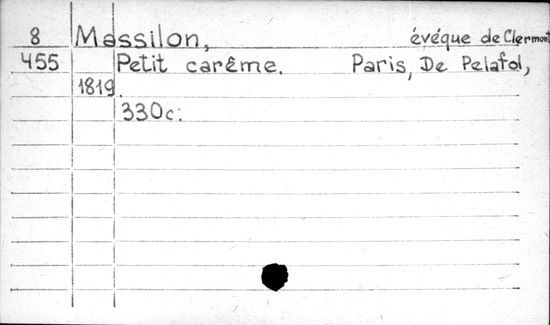 8 Massilon, évéque de Clermont
455 Petit carême. Paris, De Pelafol,
1819.
330c.